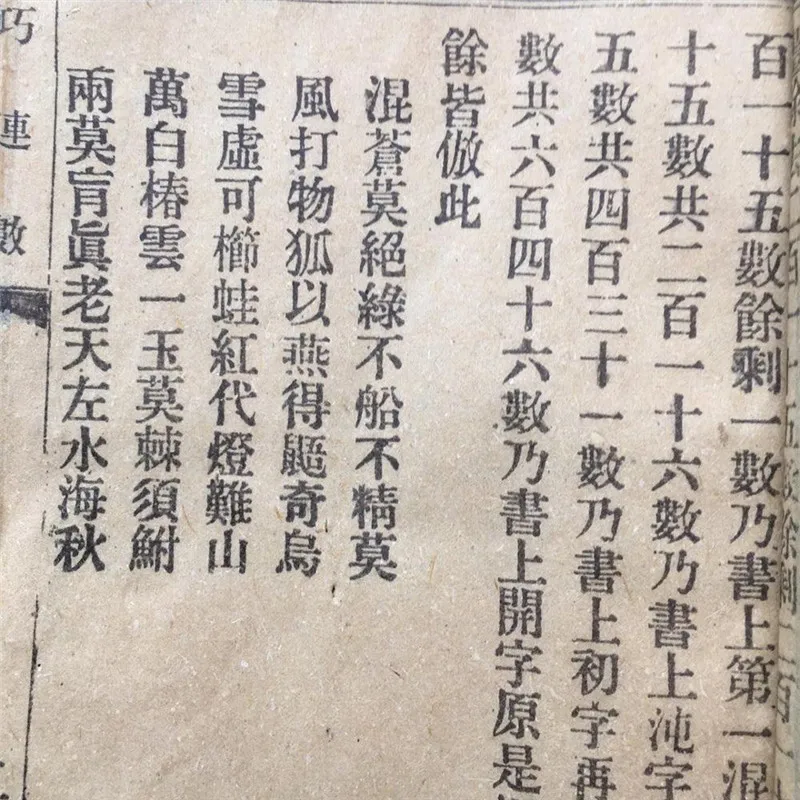 百一十五數餘剩一數乃書上第一混
十五數共二百一十六數乃書上沌字
五數共四百三十一數乃書上初字再
數共六百四十六數乃書上開字原是
餘皆倣此
混蒼莫絕綠不船不精莫
風打物狐以燕得鼯奇烏
雪虛可櫛蛙紅代燈難山
萬白椿雲一玉莫棘須鮒
兩莫肓眞老天左水海秋
巧連數